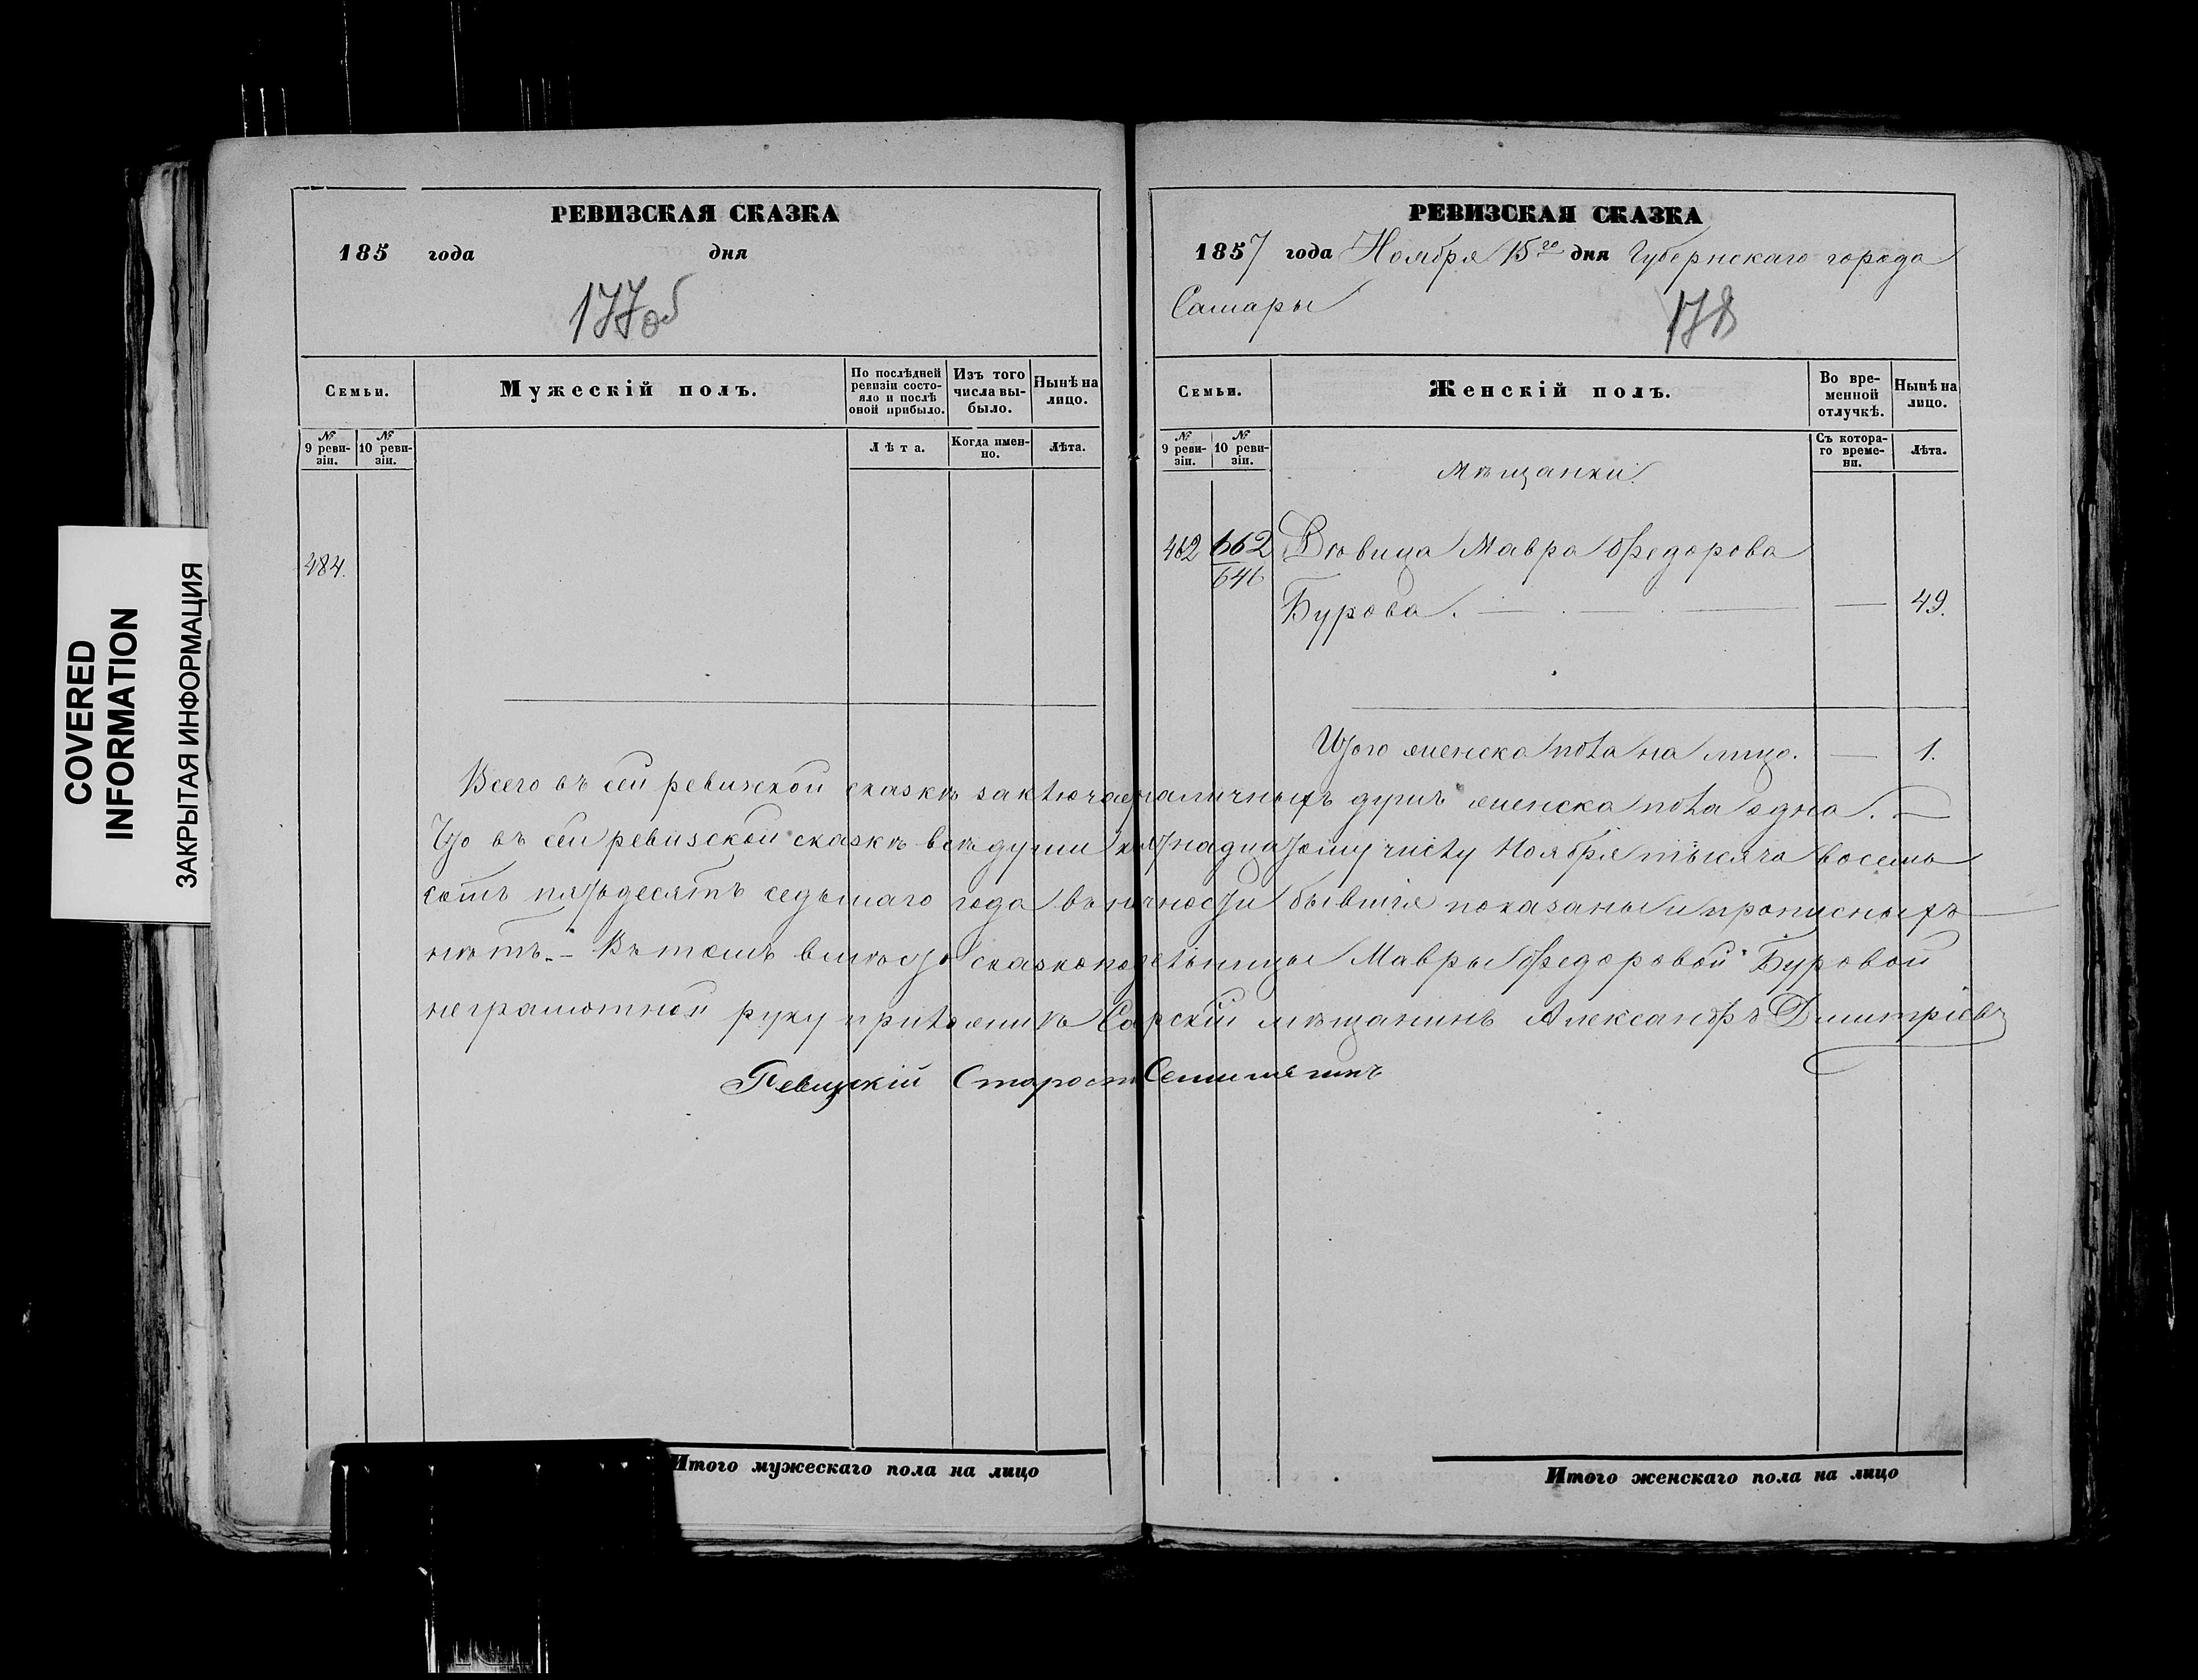 COVERED
INFORMATION
ЗАКРЫТАЯ ИНФОРМАЦИЯ
РЕВИЗСКАЯ СКАЗКА
185 года дня
177об
Семьи.
Мужескій полъ.
По послѣдней ревизіи состояло и послѣ оной прибыло.
Изъ того числа выбыло.
Нынѣ на лицо.
№ 9 ревизіи.
№ 10 ревизіи.
Лѣта.
Когда именно.
Лѣта.
484.
РЕВИЗСКАЯ СКАЗКА
1857 года Ноября 15го дня Губернскаго города
Самары
178
Семьи.
Женскій полъ.
Во временной отлучкѣ.
Нынѣ на лицо.
№ 9 ревизіи.
№ 10 ревизіи.
Съ котораго времени.
Лѣта.
Мѣщанки.
462 662 Дѣвица Мавра Федорова
646
Бурова. — — — — 49.
Итого женска пола на лицо. — 1.
Всего въ сей ревизской сказкѣ заключае наличныхъ душъ женска пола одна. —
Что въ сей ревизской сказкѣ всѣ души къ пятнадцатому числу Ноября тысяча восемь
сотъ пятьдесятъ седьмаго года въ личности бывшія показаны и прописныхъ
нѣтъ. – Въ томъ вмѣсто сказкоподательницы Мавры Федоровой Буровой
неграмотной руку приложилъ Са рскій мѣщанинъ Александръ Дмитріевъ
Ревизскій Старост
Итого мужескаго пола на лицо
Итого женскаго пола на лицо